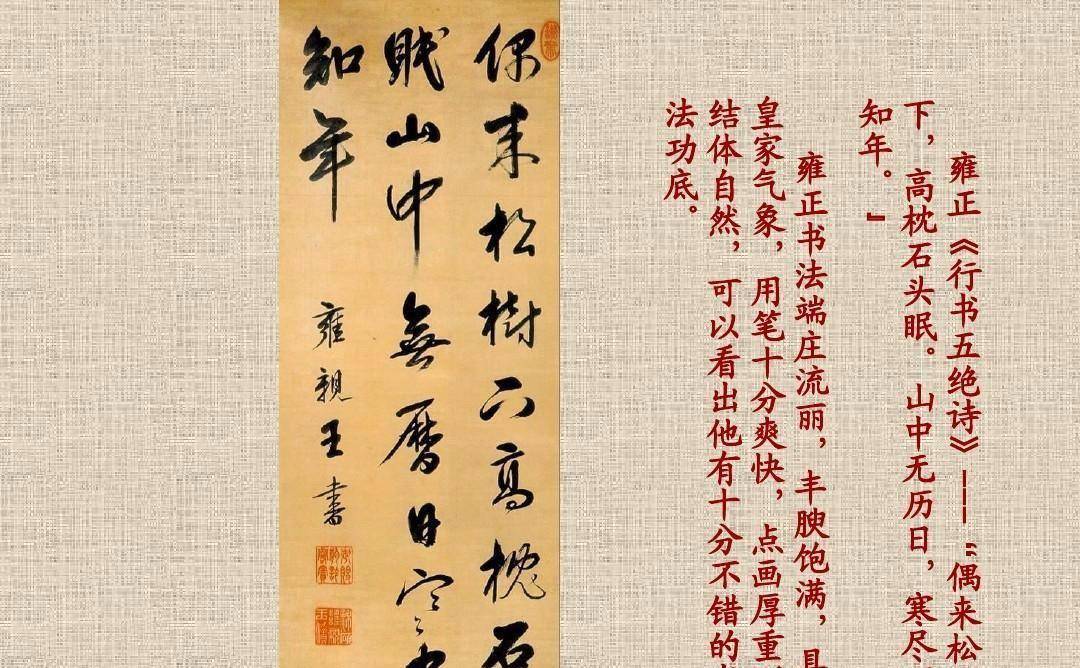 雍正《行书五绝诗》——“偶来松
下，高枕石头眠。山中无历日，寒尽
知年。”
雍正书法端庄流丽，丰腴饱满，
皇家气象，用笔十分爽快，点画厚重
结体自然，可以看出他有十分不错的
法功底。
偶来松樹下高枕石
眠山中無曆日寒
知年
雍親王書